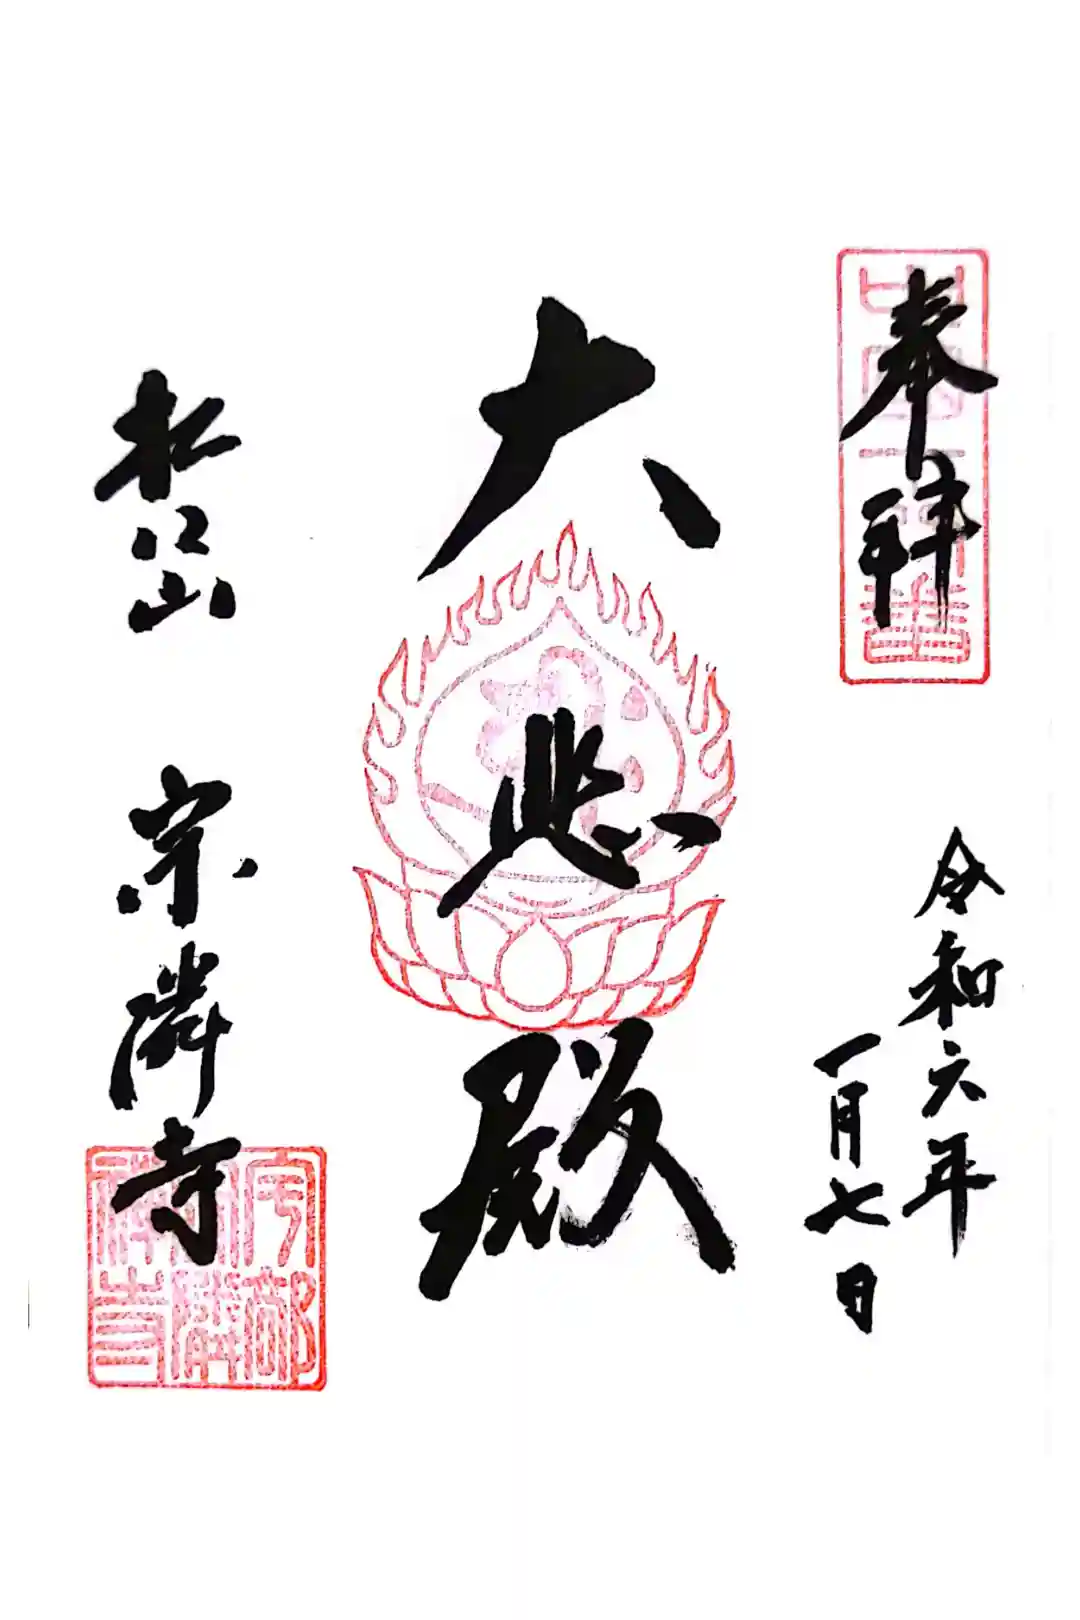 奉拝
令和六年
一月七日
大悲殿
松江山 宗隣寺
宇部
宗隣
禅寺